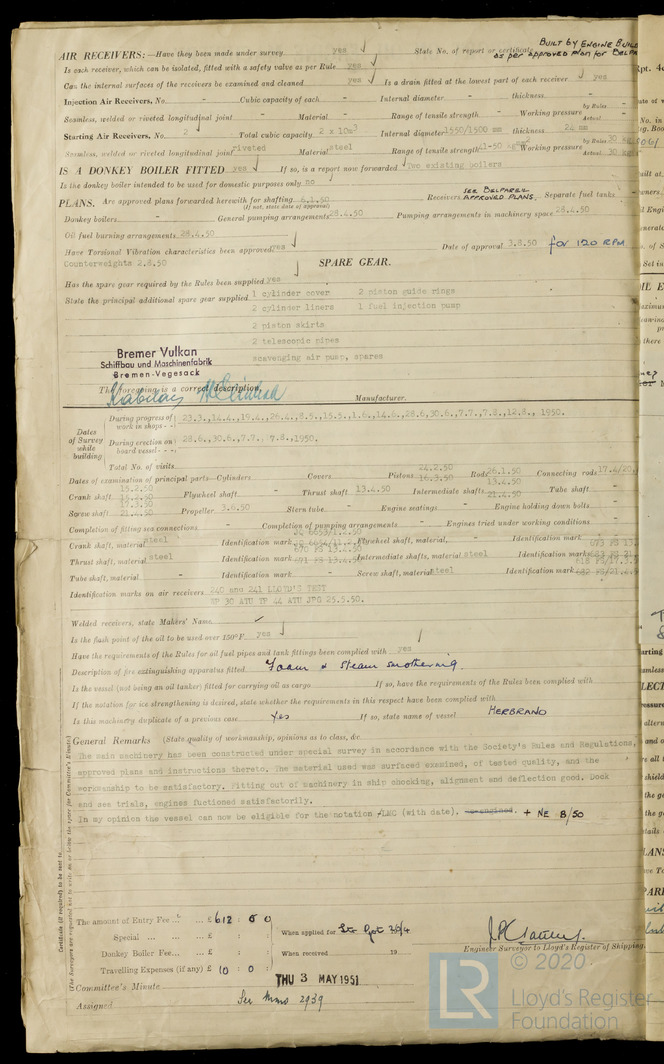 BUILT BY ENGINE BUILD
AIR RECEIVERS:—Have they been made under survey yes State No. of report or certificate as per approved plan for BELPA
Is each receiver, which can be isolated, fitted with a safety valve as per Rule yes
Can the internal surfaces of the receivers be examined and cleaned yes Is a drain fitted at the lowest part of each receiver yes
Injection Air Receivers, No. - Cubic capacity of each - Internal diameter - thickness -
Seamless, welded or riveted longitudinal joint - Material - Range of tensile strength - Working pressure by Rules - Actual -
Starting Air Receivers, No. 2 Total cubic capacity 2 x 10m³ Internal diameter 1550/1500 mm thickness 24 mm
Seamless, welded or riveted longitudinal joint riveted Material steel Range of tensile strength 41-50 Working pressure by Rules 30 Actual 30
IS A DONKEY BOILER FITTED yes If so, is a report now forwarded Two existing boilers
Is the donkey boiler intended to be used for domestic purposes only no
PLANS. Are approved plans forwarded herewith for shafting 6.1.50 Receivers SEE BELPAREIL APPROVED PLANS. Separate fuel tanks -
(If not, state date of approval)
Donkey boilers - General pumping arrangements 28.4.50 Pumping arrangements in machinery space 28.4.50
Oil fuel burning arrangements 28.4.50
Have Torsional Vibration characteristics been approved yes Date of approval 3.8.50 for 120 RPM
Counterweights 2.8.50
SPARE GEAR.
Has the spare gear required by the Rules been supplied yes
State the principal additional spare gear supplied 1 cylinder cover 2 piston guide rings
2 cylinder liners 1 fuel injection pump
2 piston skirts
2 telescopic pipes
scavenging air pump, spares
Bremer Vulkan
Schiffbau und Maschinenfabrik
Bremen-Vegesack
The foregoing is a correct description,
Manufacturer.
Dates of Survey while building
During progress of work in shops - - 23.3.,14.4.,19.4.,26.4.,8.5.,15.5.,1.6.,14.6.,28.6,30.6.,7.7.,7.8.,12.8., 1950.
During erection on board vessel - - - 28.6.,30.6.,7.7., 7.8.,1950.
Total No. of visits
Dates of examination of principal parts—Cylinders Covers - Pistons 24.2.50 16.3.50 Rods 26.1.50 13.4.50 Connecting rods 17.4/20.
Crank shaft 15.2.50 15.2.50 Flywheel shaft - Thrust shaft 13.4.50 Intermediate shafts 21.4.50 Tube shaft -
Screw shaft 17.3.50 21.4.50 Propeller 3.6.50 Stern tube - Engine seatings - Engine holding down bolts -
Completion of fitting sea connections - Completion of pumping arrangements - Engines tried under working conditions -
Crank shaft, material steel Identification mark Flywheel shaft, material - Identification mark -
Thrust shaft, material steel Identification mark 670 FS 13.4.50 Intermediate shafts, material steel Identification marks
Tube shaft, material - Identification mark - Screw shaft, material steel Identification mark
Identification marks on air receivers 240 and 241 LLOYD'S TEST
WP 30 ATU TP 44 ATU JPG 25.5.50.
Welded receivers, state Makers' Name
Is the flash point of the oil to be used over 150°F. yes
Have the requirements of the Rules for oil fuel pipes and tank fittings been complied with yes
Description of fire extinguishing apparatus fitted Foam & Steam smothering.
Is the vessel (not being an oil tanker) fitted for carrying oil as cargo If so, have the requirements of the Rules been complied with
If the notation for ice strengthening is desired, state whether the requirements in this respect have been complied with
Is this machinery duplicate of a previous case Yes If so, state name of vessel HERBRAND
General Remarks (State quality of workmanship, opinions as to class, &c.
The main machinery has been constructed under special survey in accordance with the Society's Rules and Regulations,
approved plans and instructions thereto. The material used was surfaced examined, of tested quality, and the
workmanship to be satisfactory. Fitting out of machinery in ship chocking, alignment and deflection good. Dock
and see trials, engines fuctioned satisfactorily.
In my opinion the vessel can now be eligible for the notation +LMC (with date). re-engined. + NE 8/50
The amount of Entry Fee .. £ 612 : 0 0
Special ... ... £ :
Donkey Boiler Fee... ... £ :
Travelling Expenses (if any) £ 10 : 0
When applied for
When received 19
Engineer Surveyor to Lloyd's Register of Shipping.
Committee's Minute THU 3 MAY 1951
Assigned See Mmo 2939
© 2020
LR Lloyd's Register
Foundation